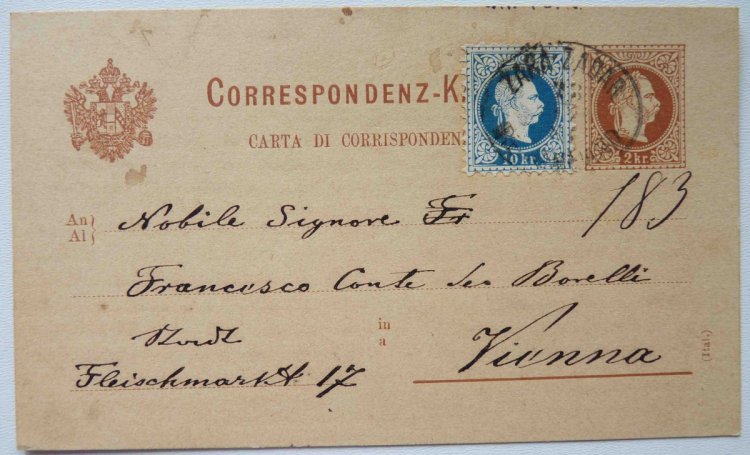 CORRESPONDENZ-K
CARTA DI CORRISPONDEN
ZARA ZADAR
10 kr.
2 kr.
183
An
Al
Nobile Signore Fr
Francesco Conte de Borelli
Stadt
in
a
Vienna
Fleischmarkt 17
(Ital.)